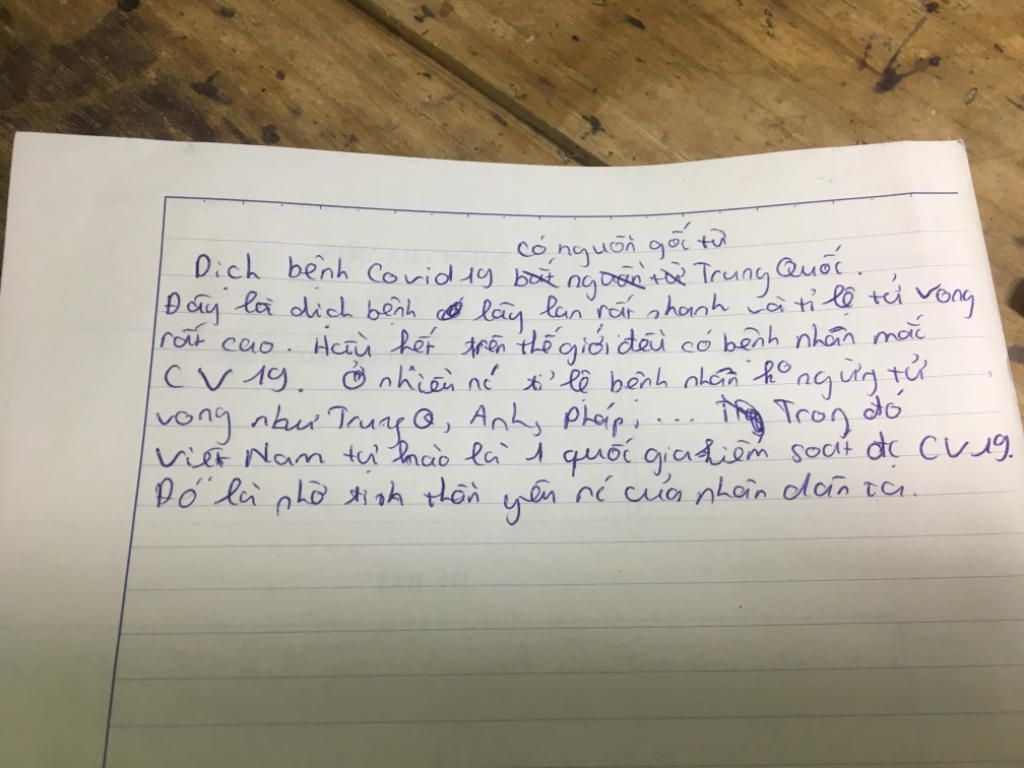 có nguồn gốc từ
Dịch bệnh Covid 19 bắt nguồn từ Trung Quốc.
Đây là dịch bệnh lây lan rất nhanh và tỉ lệ tử vong
rất cao. Hầu hết trên thế giới đều có bệnh nhân mắc
CV19. Ở nhiều nc tỉ lệ bệnh nhân ko ngừng tử
vong như Trung Q, Anh, Pháp, ... Trong đó
Việt Nam tự hào là 1 quốc gia kiểm soát đc CV19.
Đó là nhờ tinh thần yêu nc của nhân dân ta.